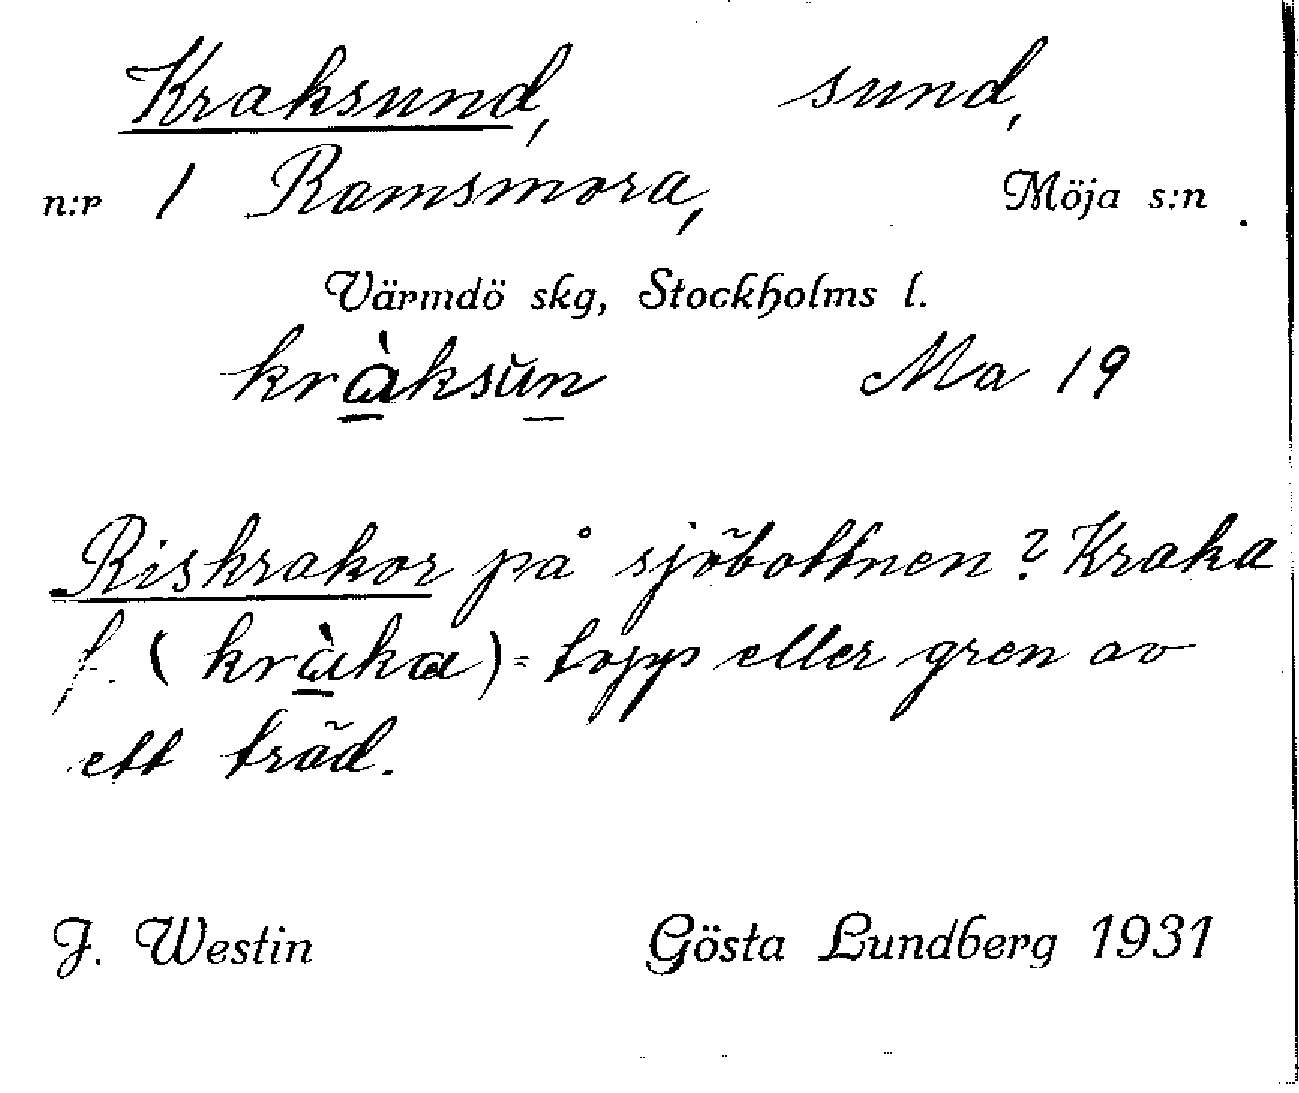 Kraksund, sund,
n:r 1 Ramsmora, Möja s:n.
Värmdö skg, Stockholms l.
kràksŭn Ma 19
Riskrakor på sjöbottnen? Kraka
f. (kràka) = topp eller gren av
ett träd.
J. Westin Gösta Lundberg 1931